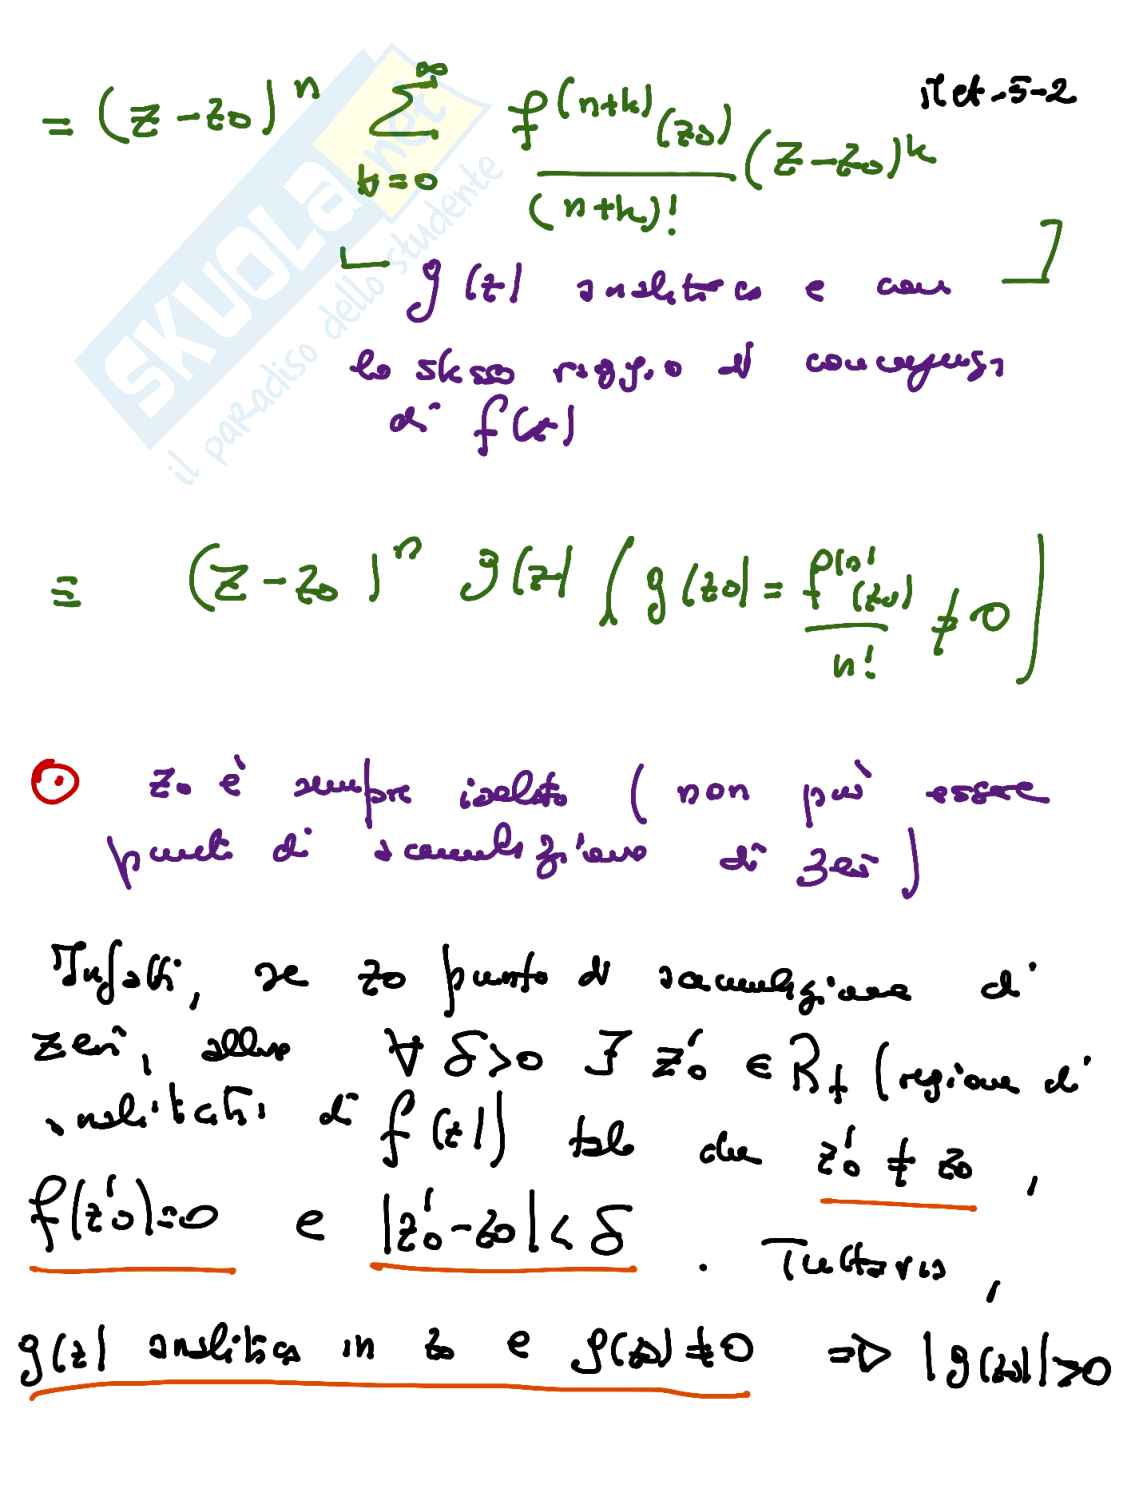 = (z-z₀)ⁿ ∑_{k=0}^{∞} f^{(n+k)}(z₀)/(n+k)! (z-z₀)^k
Met-5-2
SKUOLA.net
il paradiso dello studente
g(z) analitica e con
lo stesso raggio di convergenza
di f(z)
= (z-z₀)ⁿ g(z) (g(z₀) = f^{(n)}(z₀)/n! ≠ 0)
⊙ z₀ è sempre isolato (non può essere
punto di accumulazione di zeri)
Infatti, se z₀ punto di accumulazione di
zeri, allora ∀ δ>0 ∃ z₀' ∈ R_f (regione di
analiticità di f(z)) tale che z₀' ≠ z₀,
f(z₀')=0 e |z₀'-z₀| < δ. Tuttavia,
g(z) analitica in z₀ e g(z₀)≠0 => |g(z₀)|>0